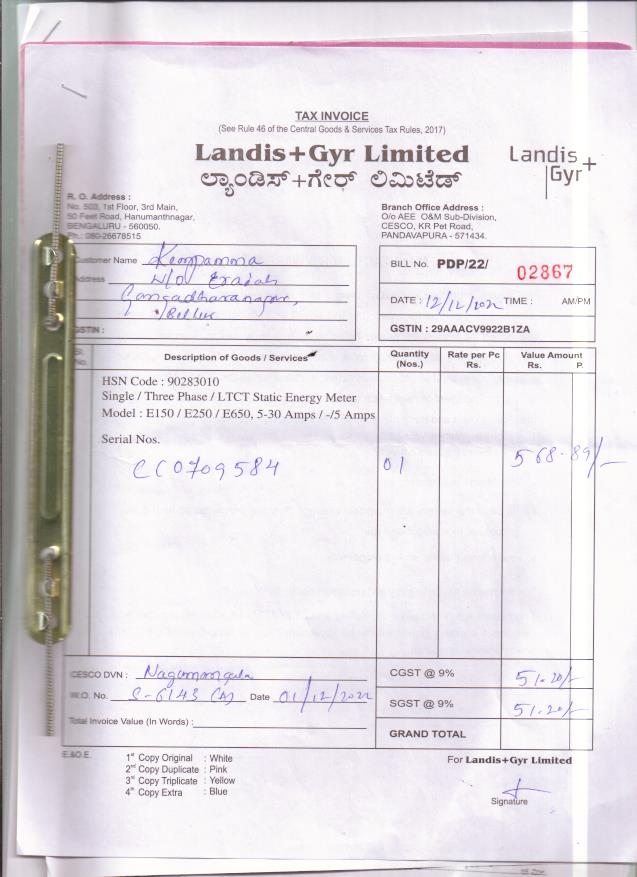 TAX INVOICE
(See Rule 46 of the Central Goods & Services Tax Rules, 2017)
Landis+Gyr Limited
ಲ್ಯಾಂಡಿಸ್+ಗೇರ್ ಲಿಮಿಟೆಡ್
Landis+
Gyr
R. O. Address :
No. 503, 1st Floor, 3rd Main,
50 Feet Road, Hanumanthnagar,
BENGALURU - 560050.
Ph.: 080-26678515
Branch Office Address :
O/o AEE O&M Sub-Division,
CESCO, KR Pet Road,
PANDAVAPURA - 571434.
Customer Name Kempamma
Address W/o Eraiah
Gangadharanagar,
Bellur
GSTIN :
BILL No. PDP/22/ 02867
DATE : 12/12/2022 TIME : AM/PM
GSTIN : 29AAACV9922B1ZA
Sl. No. Description of Goods / Services Quantity (Nos.) Rate per Pc Rs. Value Amount Rs. P.
HSN Code : 90283010
Single / Three Phase / LTCT Static Energy Meter
Model : E150 / E250 / E650, 5-30 Amps / -/5 Amps
Serial Nos.
CC0709584 01 568.89/-
CESCO DVN : Nagamangala
W.O. No. S-6143 (A) Date 01/12/2022
Total Invoice Value (In Words) :
CGST @ 9% 51.20/-
SGST @ 9% 51.20/-
GRAND TOTAL
E.&O.E.
1st Copy Original : White
2nd Copy Duplicate : Pink
3rd Copy Triplicate : Yellow
4th Copy Extra : Blue
For Landis+Gyr Limited
Signature